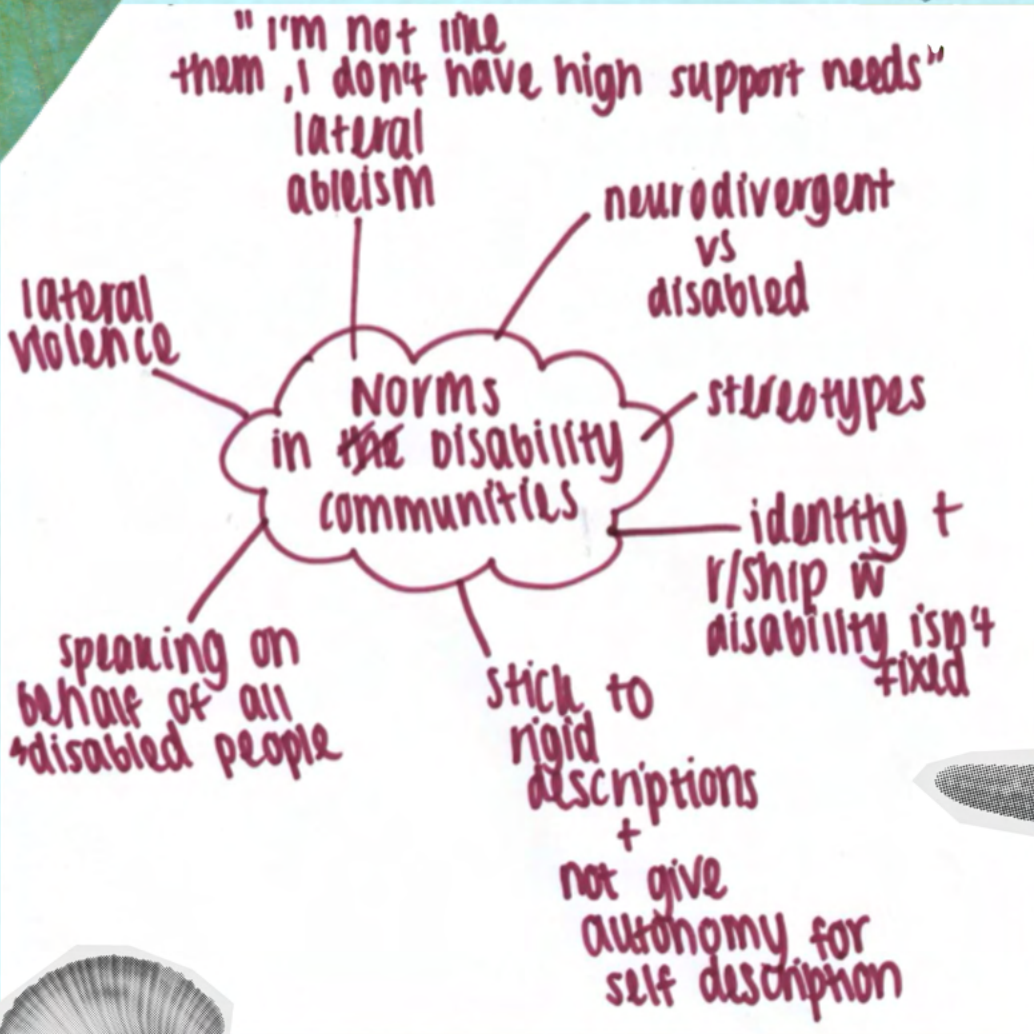 "I'm not like
them, I don't have high support needs"
lateral
ableism
neurodivergent
vs
disabled
lateral
violence
stereotypes
Norms
in the Disability
communities
identity +
r/ship w
disability isn't
fixed
speaking on
behalf of all
disabled people
stick to
rigid
descriptions
+
not give
autonomy for
self description